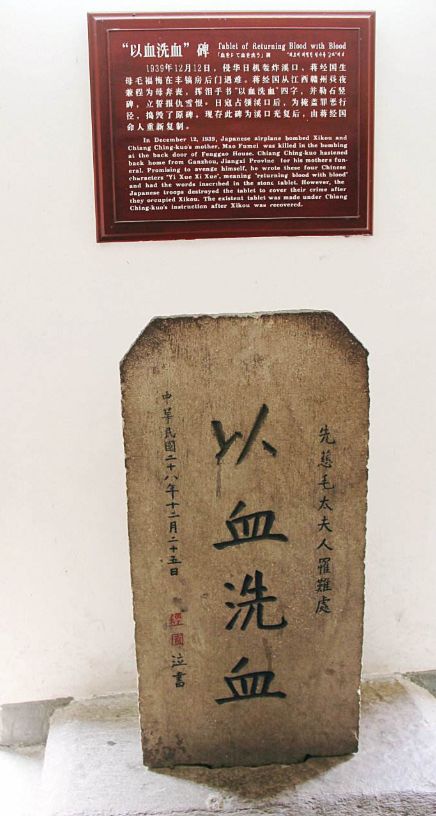 “以血洗血”碑 Tablet of Returning Blood with Blood
1939年12月12日，侵华日机轰炸溪口，蒋经国生
母毛福梅在丰镐房后门遇难。蒋经国从江西赣州昼夜
兼程为母奔丧，挥泪手书“以血洗血”四字，并勒石竖
碑，立誓报仇雪恨。日寇占领溪口后，为掩盖罪恶行
径，捣毁了原碑，现存此碑为溪口光复后，由蒋经国
命人重新复制。
In December 12, 1939, Japanese airplans bombed Xikou and
Chiang Ching-kuo's mother, Mao Fumei was killed in the bombing
at the back door of Fenggao House. Chiang Ching-kuo hastened
back home from Ganzhou, Jiangxi Provinc for his mothers fun-
eral. Promising to avenge himself, he wrote these four Chinese
characters "Yi Xue Xi Xue", meaning "returning blood with blood"
and had the words inscribed in the stone tablet. However, the
Japanese troops destroyed the tablet to cover their crime after
they occupied Xikou. The existent tablet was made under Chiang
Ching-kuo's instruction after Xikou was recovered.
先慈毛太夫人罹難處
以血洗血
中華民國二十八年十二月二十五日
經國 泣書